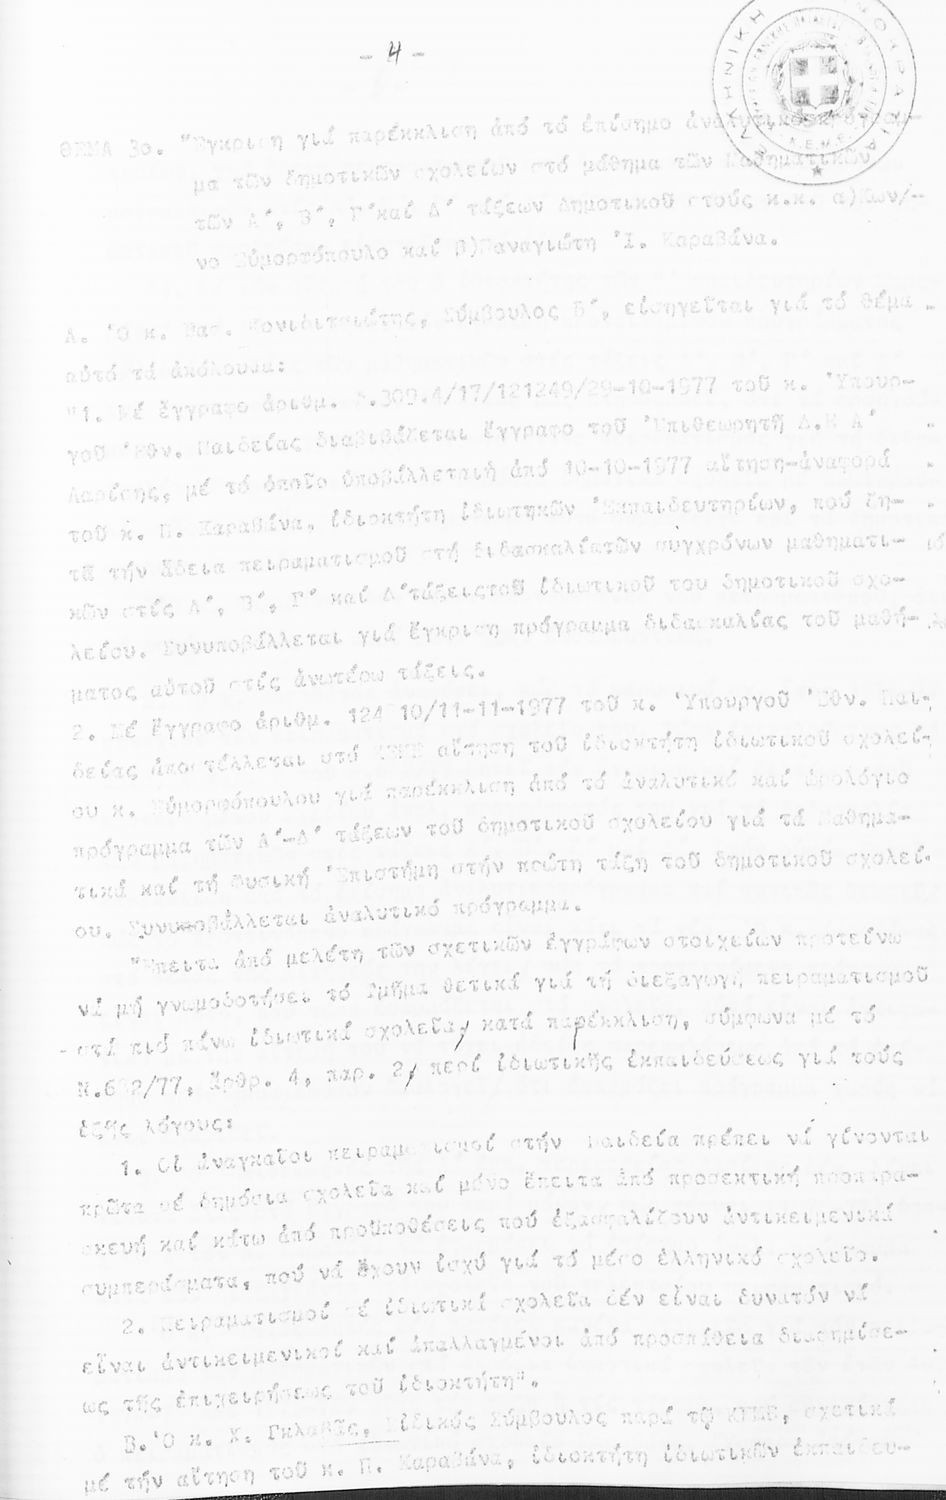 - 4 -
ΕΛΛΗΝΙΚΗ ΔΗΜΟΚΡΑΤΙΑ
ΘΕΜΑ 3ο. "Έγκριση γιά παρέκκλιση ἀπό τό ἐπίσημο ἀναλυτικό πρόγραμ-
μα τῶν δημοτικῶν σχολείων στό μάθημα τῶν Μαθηματικῶν
τῶν Α΄, Β΄, Γ΄καί Δ΄ τάξεων Δημοτικοῦ στούς κ.κ. α)Κων/-
νο Εὐμορφόπουλο καί β)Παναγιώτη Ἰ. Καραβάνα.
Α. Ὁ κ. Βασ. Κονιδιτσιώτης, Σύμβουλος Β΄, εἰσηγεῖται γιά τό θέμα
αὐτό τά ἀκόλουθα:
"1. Μέ ἔγγραφο ἀριθμ. 309.4/17/121249/29-10-1977 τοῦ κ. Ὑπουρ-
γοῦ Ἐθν. Παιδείας διαβιβάζεται ἔγγραφο τοῦ Ἐπιθεωρητῆ Δ.Ε Α΄
Λαρίσης, μέ τό ὁποῖο ὑποβάλλεταιἡ ἀπό 10-10-1977 αἴτηση-ἀναφορά
τοῦ κ. Π. Καραβάνα, ἰδιοκτήτη ἰδιωτικῶν Ἐκπαιδευτηρίων, πού ζη-
τᾶ τήν ἄδεια πειραματισμοῦ στή διδασκαλίατῶν συγχρόνων μαθηματι-
κῶν στίς Α΄, Β΄, Γ΄ καί Δ΄τάξειςτοῦ ἰδιωτικοῦ του δημοτικοῦ σχο-
λείου. Συνυποβάλλεται γιά ἔγκριση πρόγραμμα διδασκαλίας τοῦ μαθή-
ματος αὐτοῦ στίς ἀνωτέρω τάξεις.
2. Μέ ἔγγραφο ἀριθμ. 124 10/11-11-1977 τοῦ κ. Ὑπουργοῦ Ἐθν. Παι-
δείας ἀποστέλλεται στό ΚΕΜΕ αἴτηση τοῦ ἰδιοκτήτη ἰδιωτικοῦ σχολεί-
ου κ. Εὐμορφόπουλου γιά παρέκκλιση ἀπό τό ἀναλυτικό καί ὡρολόγιο
πρόγραμμα τῶν Α΄-Δ΄ τάξεων τοῦ δημοτικοῦ σχολείου γιά τά Μαθημα-
τικά καί τή Φυσική Ἐπιστήμη στήν πρώτη τάξη τοῦ δημοτικοῦ σχολεί-
ου. Συνυποβάλλεται ἀναλυτικό πρόγραμμα.
"Ἔπειτα ἀπό μελέτη τῶν σχετικῶν ἐγγράφων στοιχείων προτείνω
νά μή γνωμοδοτήσει τό Τμῆμα θετικά γιά τή διεξαγωγή πειραματισμοῦ
στά πιό πάνω ἰδιωτικά σχολεῖα, κατά παρέκκλιση, σύμφωνα μέ τό
Ν.682/77, ἄρθρ. 4, παρ. 2, περί ἰδιωτικῆς ἐκπαιδεύσεως γιά τούς
ἑξῆς λόγους:
1. Οἱ ἀναγκαῖοι πειραματισμοί στήν Παιδεία πρέπει νά γίνονται
πρῶτα σέ δημόσια σχολεῖα καί μόνο ἔπειτα ἀπό προσεκτική προπαρα-
σκευή καί κάτω ἀπό προϋποθέσεις πού ἐξασφαλίζουν ἀντικειμενικά
συμπεράσματα, πού νά ἔχουν ἰσχύ γιά τό μέσο ἑλληνικό σχολεῖο.
2. Πειραματισμοί σέ ἰδιωτικά σχολεῖα δέν εἶναι δυνατόν νά
εἶναι ἀντικειμενικοί καί ἀπαλλαγμένοι ἀπό προσπάθεια διαφημίσε-
ως τῆς ἐπιχειρήσεως τοῦ ἰδιοκτήτη".
Β.Ὁ κ. Χ. Γκλαβᾶς, Εἰδικός Σύμβουλος παρά τῷ ΚΕΜΕ, σχετικά
μέ τήν αἴτηση τοῦ κ. Π. Καραβάνα, ἰδιοκτήτη ἰδιωτικῶν ἐκπαιδευ-